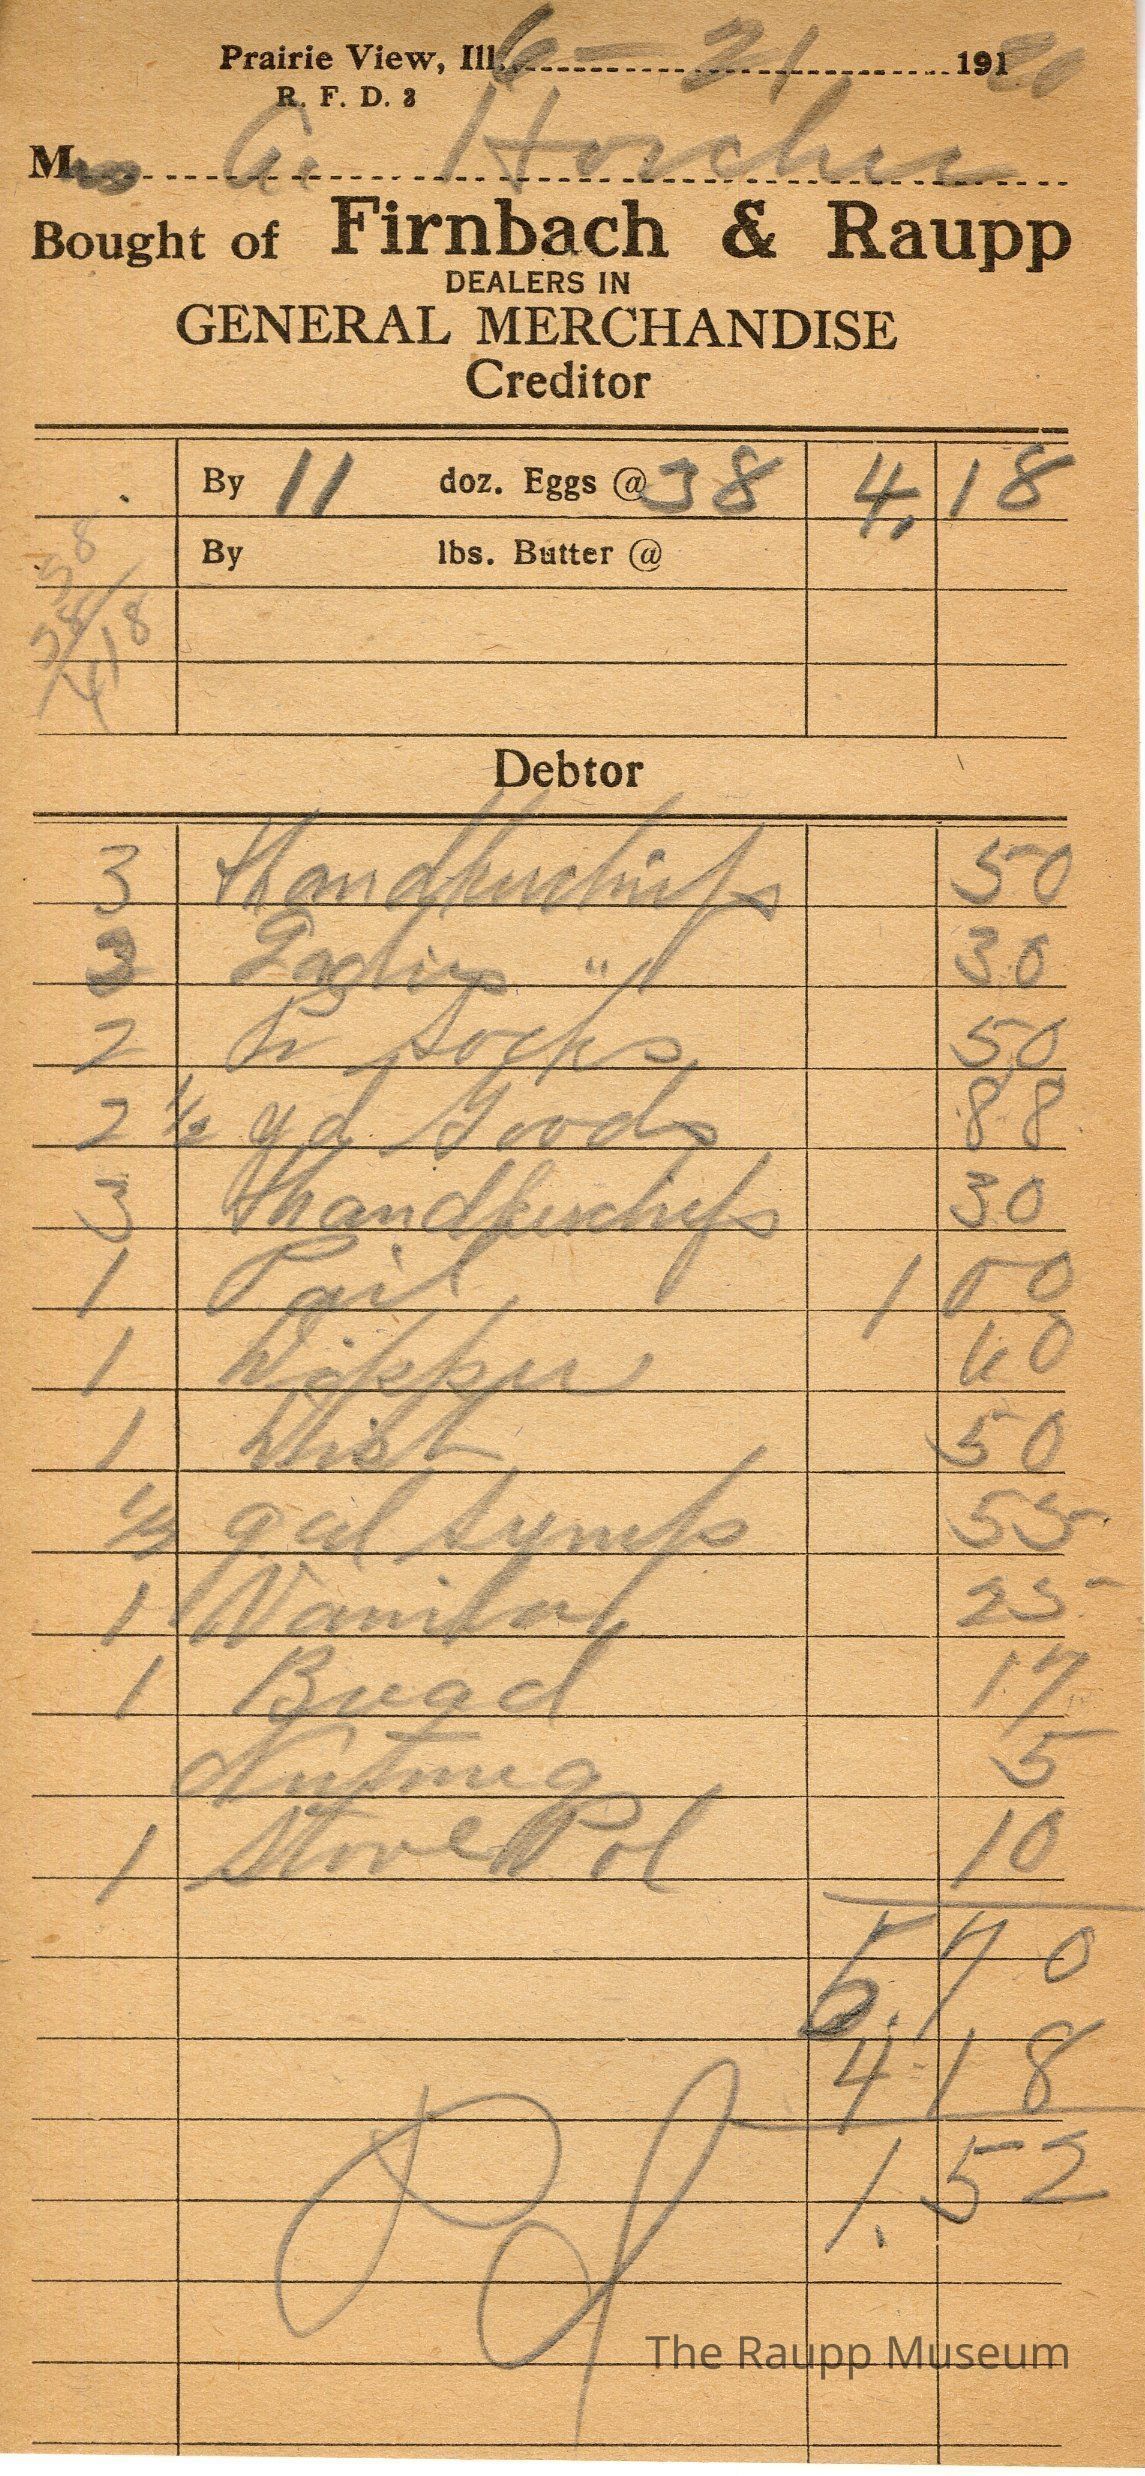 Prairie View, Ill. 6-21 191 20
R. F. D. 3
Mrs A. Horcher
Bought of Firnbach & Raupp
DEALERS IN
GENERAL MERCHANDISE
Creditor
By 11 doz. Eggs @ 38 4.18
By lbs. Butter @
38
38
418
Debtor
3 Handkerchiefs 50
3 Ladies " 30
2 Pr Socks 50
2 1/2 yd Goods 88
3 Handkerchefs 30
1 Pail 1 50
1 Dipper 60
1 50
1/2 gal Syrup 55
1 Vanila 25
1 Bread 17
Nutmeg 5
1 Stove Pol 10
5.70
4.18
1.52
Pd
The Raupp Museum